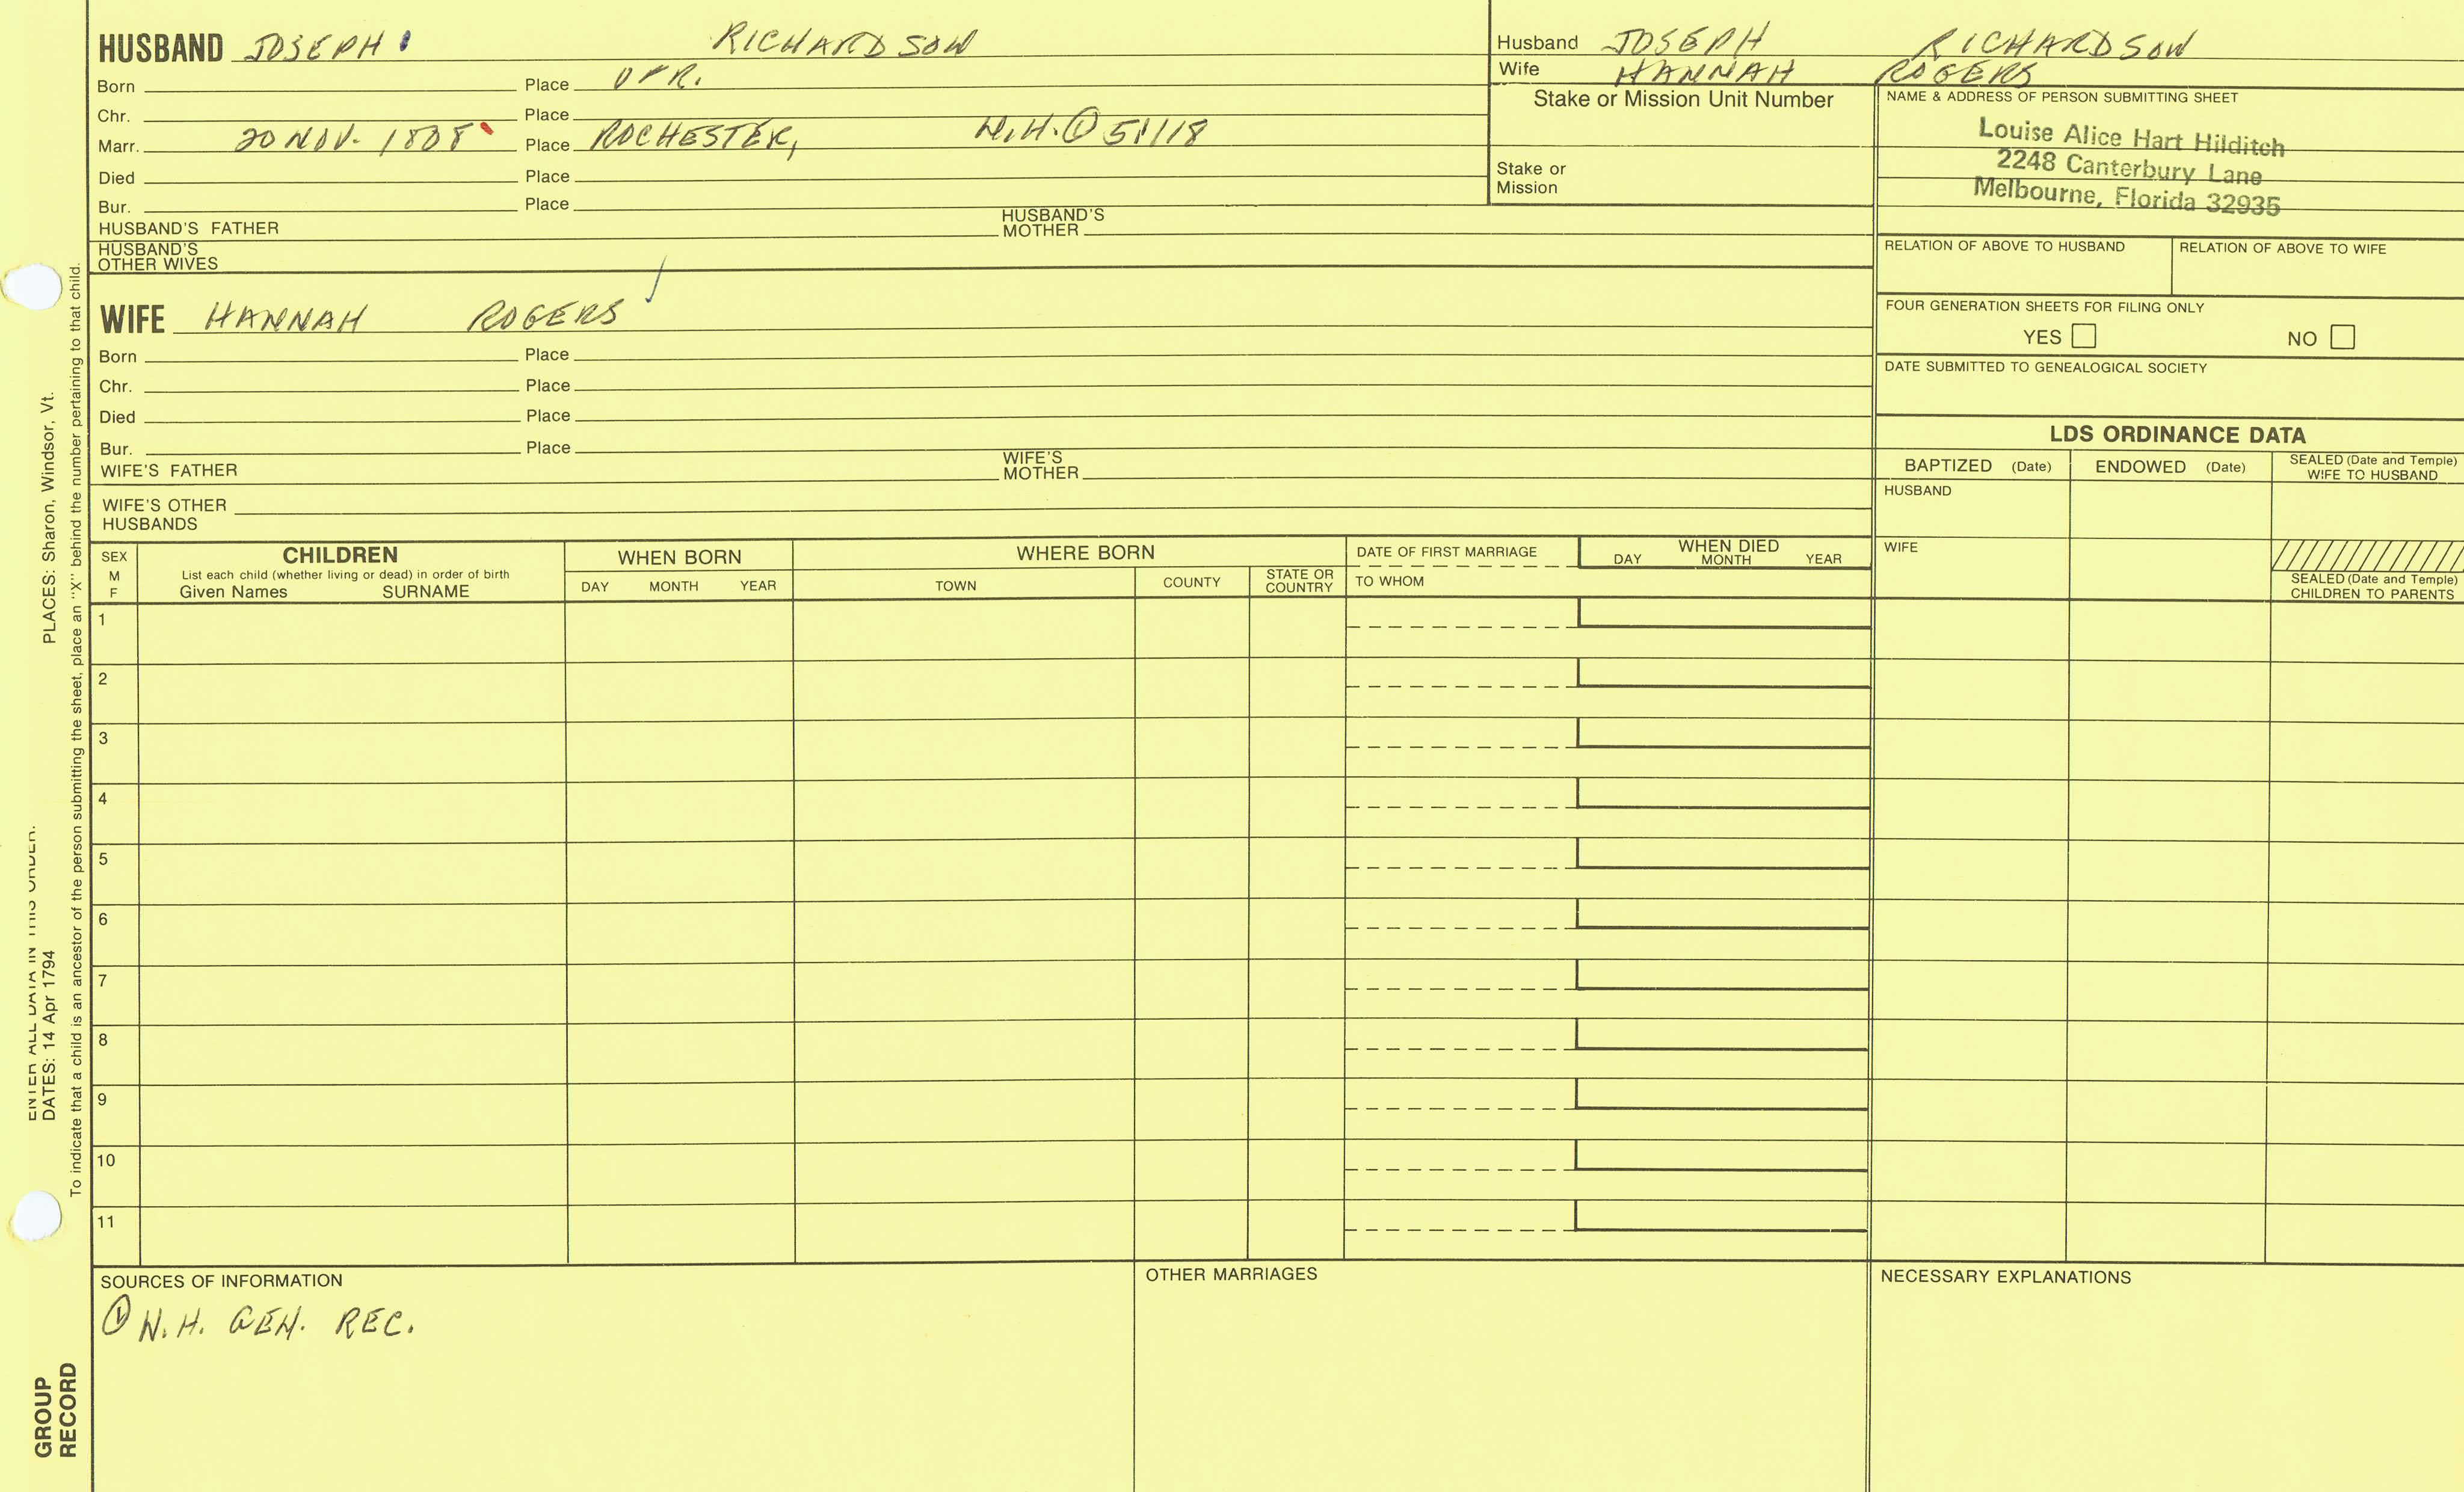 HUSBAND JOSEPH RICHARDSON
Born Place
Chr. Place
Marr. 20 NOV. 1808 Place ROCHESTER, N.H. ① 51/18
Died Place
Bur. Place
HUSBAND'S FATHER HUSBAND'S MOTHER
HUSBAND'S OTHER WIVES
Husband JOSEPH RICHARDSON
Wife HANNAH ROGERS
Stake or Mission Unit Number
Stake or Mission
NAME & ADDRESS OF PERSON SUBMITTING SHEET
Louise Alice Hart Hilditch
2248 Canterbury Lane
Melbourne, Florida 32935
RELATION OF ABOVE TO HUSBAND RELATION OF ABOVE TO WIFE
FOUR GENERATION SHEETS FOR FILING ONLY
YES NO
DATE SUBMITTED TO GENEALOGICAL SOCIETY
WIFE HANNAH ROGERS
Born Place
Chr. Place
Died Place
Bur. Place
WIFE'S FATHER WIFE'S MOTHER
WIFE'S OTHER HUSBANDS
LDS ORDINANCE DATA
BAPTIZED (Date) ENDOWED (Date) SEALED (Date and Temple) WIFE TO HUSBAND
HUSBAND
WIFE
SEALED (Date and Temple) CHILDREN TO PARENTS
SEX M F
CHILDREN
List each child (whether living or dead) in order of birth
Given Names SURNAME
WHEN BORN
DAY MONTH YEAR
WHERE BORN
TOWN COUNTY STATE OR COUNTRY
DATE OF FIRST MARRIAGE
TO WHOM
WHEN DIED
DAY MONTH YEAR
1
2
3
4
5
6
7
8
9
10
11
SOURCES OF INFORMATION
① N.H. GEN. REC.
OTHER MARRIAGES
NECESSARY EXPLANATIONS
ENTER ALL DATA IN THIS ORDER:
DATES: 14 Apr 1794 PLACES: Sharon, Windsor, Vt.
To indicate that a child is an ancestor of the person submitting the sheet, place an "X" behind the number pertaining to that child.
GROUP
RECORD